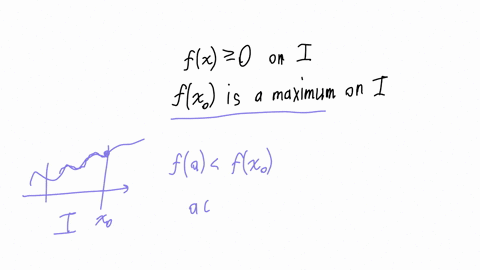 f(x) ≥ 0 on I
f(x₀) is a maximum on I
f(a) < f(x₀)
a(
I x₀